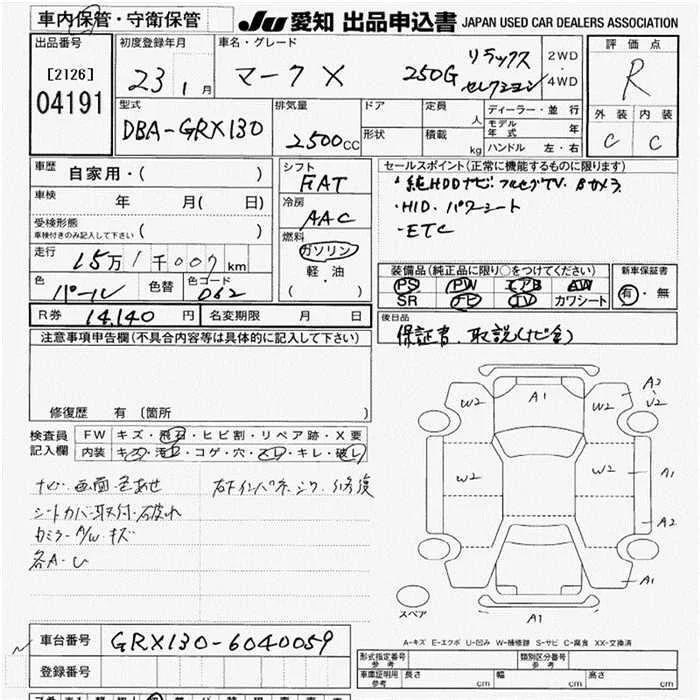 車内保管・守衛保管
JU 愛知 出品申込書 JAPAN USED CAR DEALERS ASSOCIATION
出品番号
[2126]
04191
初度登録年月
23 1月
車名・グレード
マークX 250G リラックス
セレクション
2WD
4WD
評価点
R
外装 内装
C C
型式
DBA-GRX130
排気量
2500CC
ドア
形状
定員
人
積載
kg
ディーラー・並行
モデル年式 年
ハンドル 左・右
車歴 自家用・( )
車検 年 月( 日)
受検形態
車検付きのみ記入して下さい ( )
走行 15万1千007km
色 パール 色替 色コード 062
シフト
FAT
冷房
AAC
燃料
ガソリン
軽・油
( )
セールスポイント(正常に機能するものに限ります)
・純HDDナビ フルセグTV Bカメラ
・HID. パワーシート
・ETC
装備品(純正品に限り○をつけてください)
PS PW エアB AW
SR ナビ TV カワシート
新車保証書
有・無
R券 14,140円 名変期限 月 日
後日品
保証書、取説(ナビ含)
注意事項申告欄(不具合内容等は具体的に記入して下さい)
修復歴 有 〔箇所 〕
検査員
記入欄
FW キズ・飛石・ヒビ割・リペア跡・X要
内装 キズ・汚レ・コゲ・穴・スレ・キレ・破レ
ナビ画面色あせ
シートカバー取付・破れ
カミラーA/W キズ
各A・U
右F インパネ シワ 修復
W2 A1 W2 A2
U2
W2 W2 A1
A2
A1
スペア
A1
A-キズ E-エクボ U-凹み W-補修跡 S-サビ C-腐食 XX-交換済
車台番号 GRX130-6040059
登録番号
形式指定番号
参考
類別区分番号
参考
車庫証明用
参考
長さ cm 幅 cm 高さ cm